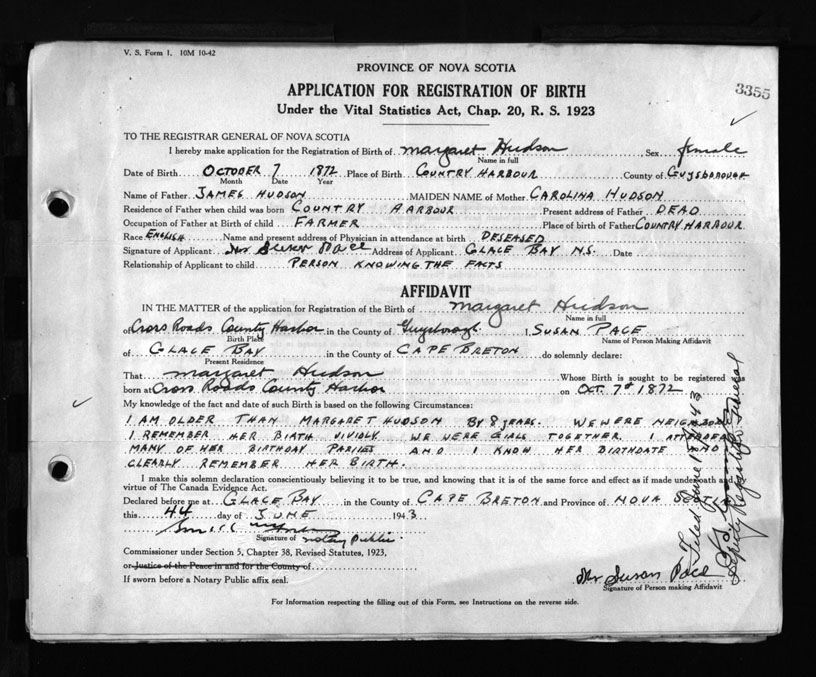 V. S. Form 1. 10M 10-42
PROVINCE OF NOVA SCOTIA
3355
APPLICATION FOR REGISTRATION OF BIRTH
Under the Vital Statistics Act, Chap. 20, R. S. 1923
TO THE REGISTRAR GENERAL OF NOVA SCOTIA
I hereby make application for the Registration of Birth of Margaret Hudson, Sex female
Name in full
Date of Birth OCTOBER 7 1872 Place of Birth COUNTRY HARBOUR County of GUYSBOROUGH
Month Date Year
Name of Father JAMES HUDSON MAIDEN NAME of Mother CAROLINA HUDSON
Residence of Father when child was born COUNTRY HARBOUR Present address of Father DEAD
Occupation of Father at Birth of child FARMER Place of birth of Father COUNTRY HARBOUR
Race ENGLISH Name and present address of Physician in attendance at birth DESEASED
Signature of Applicant Mrs Susan Pace Address of Applicant GLACE BAY N.S. Date
Relationship of Applicant to child PERSON KNOWING THE FACTS
AFFIDAVIT
IN THE MATTER of the application for Registration of the Birth of Margaret Hudson
Name in full
of Cross Roads County Harbor in the County of Guysborough I, SUSAN PACE
Birth Place Name of Person Making Affidavit
of GLACE BAY in the County of CAPE BRETON do solemnly declare:
Present Residence
That Margaret Hudson Whose Birth is sought to be registered was
born at Cross Roads County Harbor on OCT. 7th 1872
My knowledge of the fact and date of such Birth is based on the following Circumstances:
I AM OLDER THAN MARGARET HUDSON BY 8 YEARS. WE WERE NEIGHBORS
I REMEMBER HER BIRTH VIVIDLY WE WERE GIRLS TOGETHER. I ATTENDED
MANY OF HER BIRTHDAY PARTIES AND I KNOW HER BIRTHDATE AND
CLEARLY REMEMBER HER BIRTH.
I make this solemn declaration conscientiously believing it to be true, and knowing that it is of the same force and effect as if made underoath
virtue of The Canada Evidence Act.
Declared before me at GLACE BAY in the County of CAPE BRETON and Province of NOVA SCOTIA
this 4th day of JUNE 1943
Signature of Notary Public
Commissioner under Section 5, Chapter 38, Revised Statutes, 1923,
or Justice of the Peace in and for the County of
If sworn before a Notary Public affix seal.
Mrs Susan Pace
Signature of Person making Affidavit
For Information respecting the filling out of this Form, see Instructions on the reverse side.
Filed June 18 1943
Deputy Registrar General